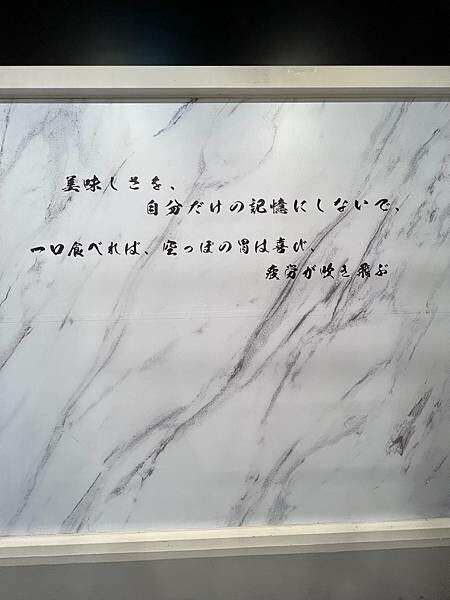 美味しさを、
自分だけの記憶にしないで、
一口食べれば、空っぽの胃は喜び、
疲労が吹き飛ぶ